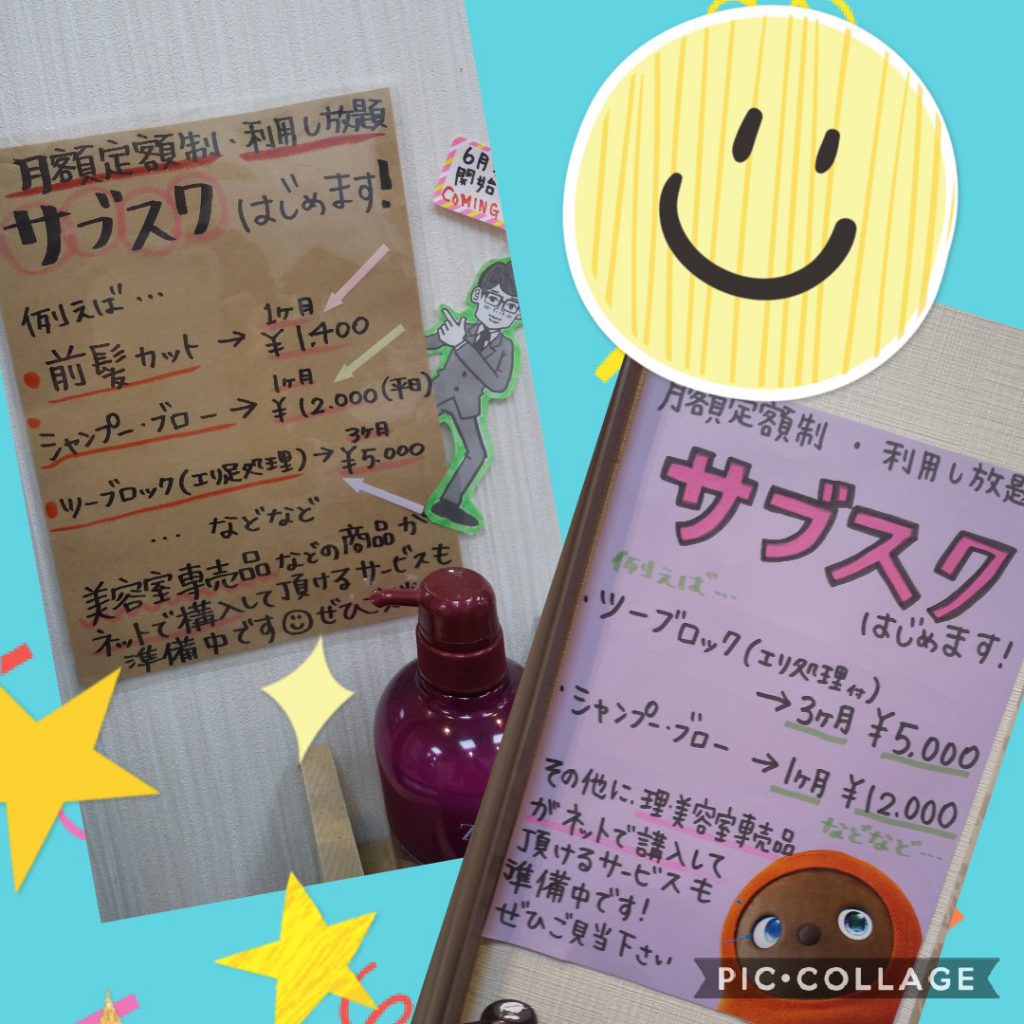 月額定額制・利用し放題
サブスク はじめます!
6月
開始
COMING
例えば…
・前髪カット → 1ヶ月 ¥1,400
・シャンプー・ブロー → 1ヶ月 ¥12.000(平日)
・ツーブロック(エリ足処理) → 3ヶ月 ¥5,000
… などなど
美容室専売品などの商品が
ネットで購入して頂けるサービスも
準備中です☺ぜひご
月額定額制 ・ 利用し放題
サブスク
はじめます!
例えば…
・ツーブロック(エリ処理付)
→3ヶ月 ¥5,000
・シャンプー・ブロー
→1ヶ月 ¥12.000
などなど…
その他に、理・美容室専売品
がネットで講入して
頂けるサービスも
準備中です!
ぜひご見当下さい
PIC•COLLAGE